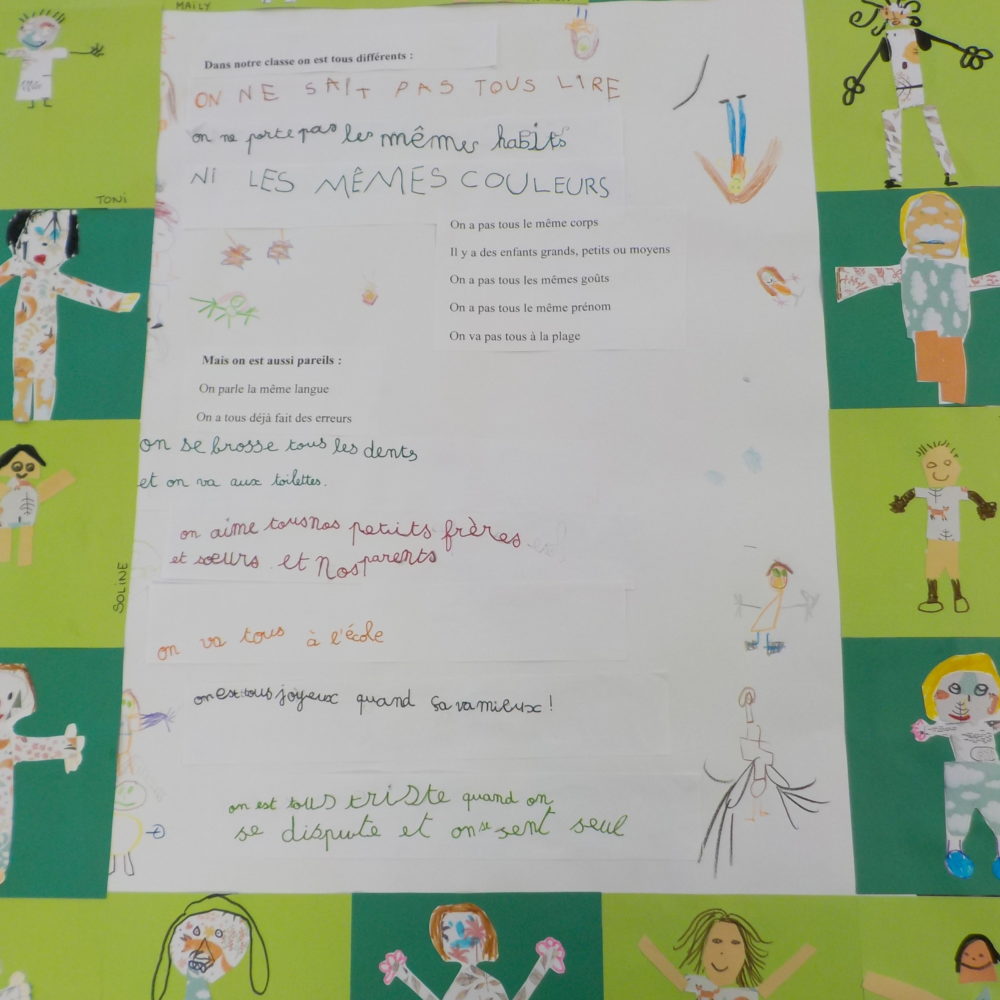 MAILY
Dans notre classe on est tous différents :
ON NE SAIT PAS TOUS LIRE
on ne porte pas les mêmes habits
NI LES MÊMES COULEURS
TONI
On a pas tous le même corps
Il y a des enfants grands, petits ou moyens
On a pas tous les mêmes goûts
On a pas tous le même prénom
On va pas tous à la plage
Mais on est aussi pareils :
On parle la même langue
On a tous déjà fait des erreurs
on se brosse tous les dents
et on va aux toilettes.
on aime tous nos petits frères
et sœurs. et nos parents
SOLINE
on va tous à l'école
on est tous joyeux quand sa va mieux !
on est tous triste quand on
se dispute et on se sent seul